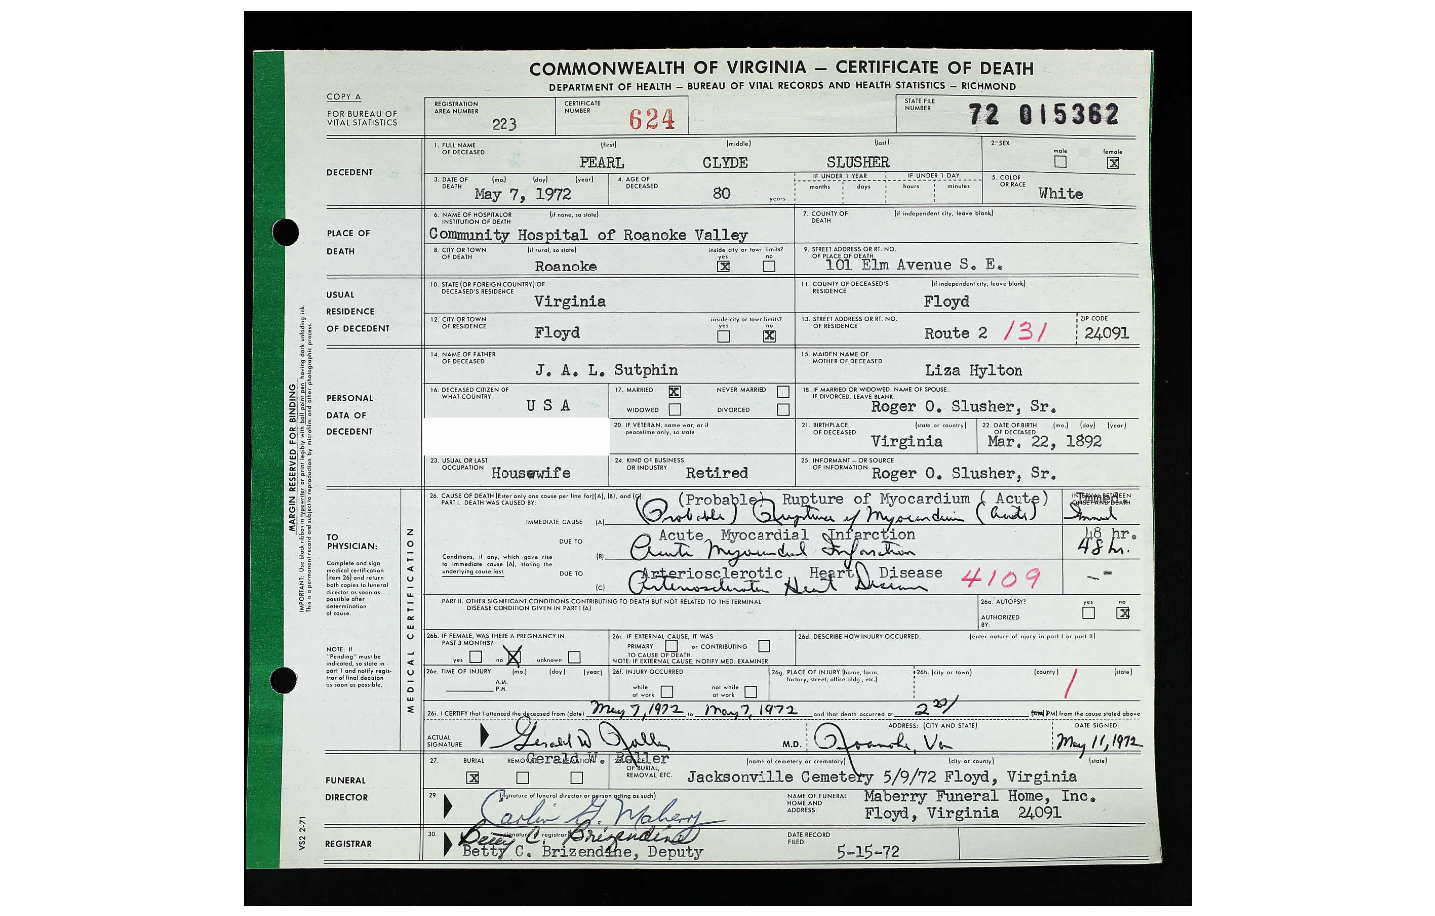 COMMONWEALTH OF VIRGINIA — CERTIFICATE OF DEATH
DEPARTMENT OF HEALTH — BUREAU OF VITAL RECORDS AND HEALTH STATISTICS — RICHMOND
COPY A
FOR BUREAU OF
VITAL STATISTICS
REGISTRATION
AREA NUMBER
223
CERTIFICATE
NUMBER
624
STATE FILE
NUMBER
72 015362
DECEDENT
1. FULL NAME
OF DECEASED
(first) (middle) (last)
PEARL CLYDE SLUSHER
2. SEX
male female
X
3. DATE OF
DEATH
(mo.) (day) (year)
May 7, 1972
4. AGE OF
DECEASED
80
years
IF UNDER 1 YEAR
months days
IF UNDER 1 DAY
hours minutes
5. COLOR
OR RACE
White
PLACE OF
DEATH
6. NAME OF HOSPITAL OR
INSTITUTION OF DEATH
(if none, so state)
Community Hospital of Roanoke Valley
7. COUNTY OF
DEATH
(if independent city, leave blank)
8. CITY OR TOWN
OF DEATH
(if rural, so state)
Roanoke
inside city or town limits?
yes no
X
9. STREET ADDRESS OR RT. NO.
OF PLACE OF DEATH
101 Elm Avenue S. E.
USUAL
RESIDENCE
OF DECEDENT
10. STATE (OR FOREIGN COUNTRY) OF
DECEASED'S RESIDENCE
Virginia
11. COUNTY OF DECEASED'S
RESIDENCE
(if independent city, leave blank)
Floyd
12. CITY OR TOWN
OF RESIDENCE
Floyd
inside city or town limits?
yes no
X
13. STREET ADDRESS OR RT. NO.
OF RESIDENCE
Route 2 131
ZIP CODE
24091
PERSONAL
DATA OF
DECEDENT
14. NAME OF FATHER
OF DECEASED
J. A. L. Sutphin
15. MAIDEN NAME OF
MOTHER OF DECEASED
Liza Hylton
16. DECEASED CITIZEN OF
WHAT COUNTRY
U S A
17. MARRIED X NEVER MARRIED
WIDOWED DIVORCED
18. IF MARRIED OR WIDOWED, NAME OF SPOUSE.
IF DIVORCED, LEAVE BLANK.
Roger O. Slusher, Sr.
20. IF VETERAN, name war, or if
peacetime only, so state
21. BIRTHPLACE
OF DECEASED
(state or country)
Virginia
22. DATE OF BIRTH
OF DECEASED
(mo.) (day) (year)
Mar. 22, 1892
23. USUAL OR LAST
OCCUPATION
Housewife
24. KIND OF BUSINESS
OR INDUSTRY
Retired
25. INFORMANT — OR SOURCE
OF INFORMATION
Roger O. Slusher, Sr.
MARGIN RESERVED FOR BINDING
TO
PHYSICIAN:
Complete and sign
medical certification
(item 26) and return
both copies to funeral
director as soon as
possible after
determination
of cause.
NOTE: If
"Pending" must be
indicated, so state in
part I and notify regis-
trar of final decision
as soon as possible.
MEDICAL CERTIFICATION
26. CAUSE OF DEATH (Enter only one cause per line for (A), (B), and (C))
PART I. DEATH WAS CAUSED BY:
(Probable) Rupture of Myocardium ( Acute)
IMMEDIATE CAUSE (A)
(Probable) Rupture of Myocardium (Acute)
INTERVAL BETWEEN
ONSET AND DEATH
Immed.
Immed
DUE TO
Acute Myocardial Infarction
48 hr.
Conditions, if any, which gave rise
to immediate cause (A), stating the
underlying cause last
(B)
Acute Myocardial Infarction
48 hr.
DUE TO
Arteriosclerotic Heart Disease
(C)
Arteriosclerotic Heart Disease
4109
PART II. OTHER SIGNIFICANT CONDITIONS CONTRIBUTING TO DEATH BUT NOT RELATED TO THE TERMINAL
DISEASE CONDITION GIVEN IN PART I (A)
26a. AUTOPSY?
yes no
AUTHORIZED
BY:
X
26b. IF FEMALE, WAS THERE A PREGNANCY IN
PAST 3 MONTHS?
yes no X unknown
26c. IF EXTERNAL CAUSE, IT WAS
PRIMARY or CONTRIBUTING
TO CAUSE OF DEATH.
NOTE: IF EXTERNAL CAUSE, NOTIFY MED. EXAMINER
26d. DESCRIBE HOW INJURY OCCURRED.
(enter nature of injury in part I or part II)
26e. TIME OF INJURY (mo.) (day) (year)
A.M.
P.M.
26f. INJURY OCCURRED
while
at work
not while
at work
26g. PLACE OF INJURY (home, farm,
factory, street, office bldg., etc.)
26h. (city or town) (county) (state)
26i. I CERTIFY that I attended the deceased from (date) May 7, 1972 to May 7, 1972 and that death occurred at (PM) from the cause stated above
ACTUAL
SIGNATURE
M.D.
ADDRESS: (CITY AND STATE)
Roanoke, Va
DATE SIGNED:
May 11, 1972
FUNERAL
DIRECTOR
27. BURIAL REMOVAL
X
OF BURIAL,
REMOVAL, ETC.
(name of cemetery or crematory) (city or county) (state)
Jacksonville Cemetery 5/9/72 Floyd, Virginia
29. (signature of funeral director or person acting as such)
NAME OF FUNERAL
HOME AND
ADDRESS
Maberry Funeral Home, Inc.
Floyd, Virginia 24091
REGISTRAR
30.
Betty C. Brizendine
Betty C. Brizendine, Deputy
DATE RECORD
FILED:
5-15-72
VS2 2-71